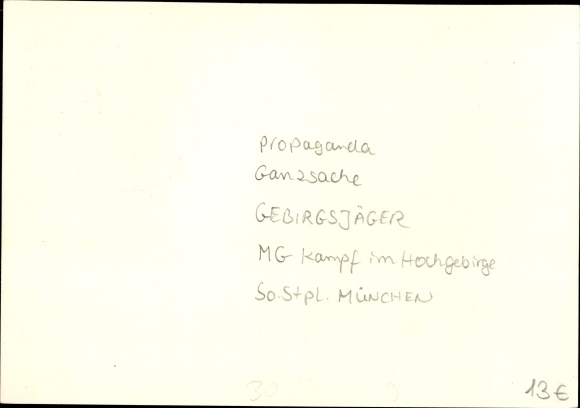 Propaganda
Ganzsache
GEBIRGSJÄGER
MG Kampf im Hochgebirge
So.Stpl. MÜNCHEN
30
13€